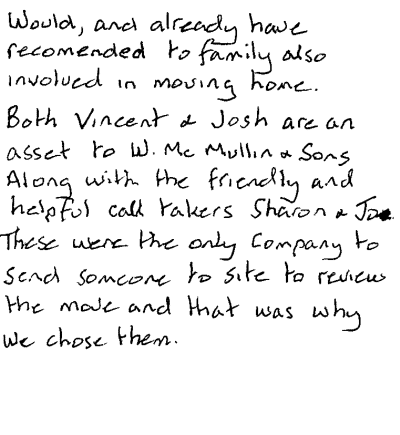 Would, and already have
recomended to family also
involved in moving home.
Both Vincent & Josh are an
asset to W. Mc Mullin & Sons
Along with the friendly and
helpful call takers Sharon & Jo.
These were the only Company to
send someone to site to review
the move and that was why
we chose them.